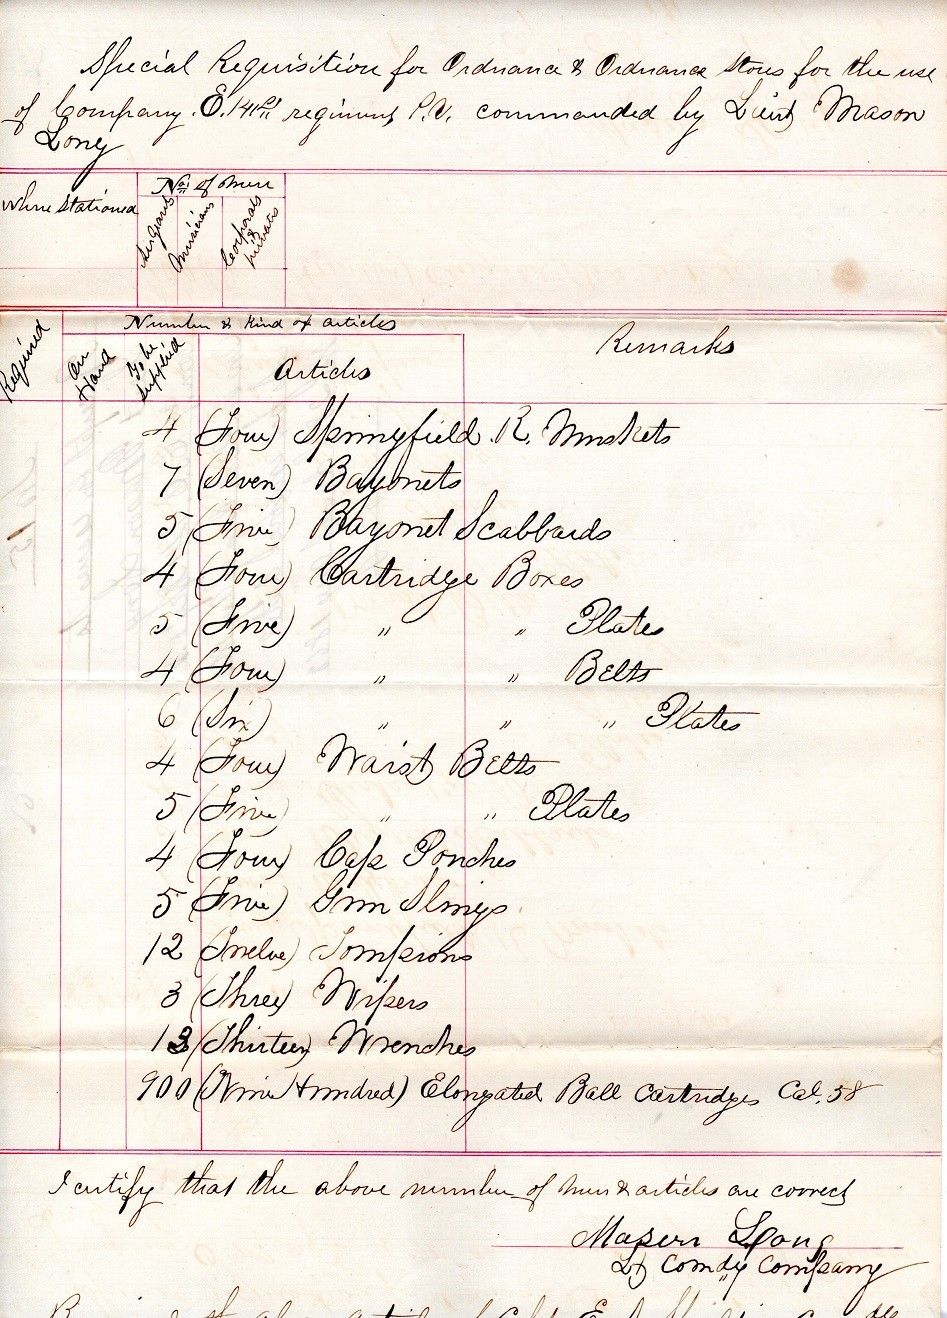 Special Requisition for Ordnance & Ordnance stores for the use
of Company. E. 14th regiment, P.V. commanded by Lieut Mason
Long
Where Stationed
Nos of men
Sergeants
Musicians
Corporals & privates
Number & Kind of articles
Required
On Hand
To be Supplied
Articles
Remarks
4 (Four) Springfield. R. Muskets
7 (Seven) Bayonets
5 (Five) Bayonet Scabbards
4 (Four) Cartridge Boxes
5 (Five) " " Plates
4 (Four) " " Belts
6 (Six) " " " Plates
4 (Four) Waist Belts
5 (Five) " " Plates
4 (Four) Cap Pouches
5 (Five) Gun Slings
12 (Twelve) Tompions
3 (Three) Wipers
13 (Thirteen) Wrenches
900 (Nine Hundred) Elongated Ball Cartridges Cal. 58
I certify that the above number of men & articles are correct
Mason Long
Lt Comdg Company